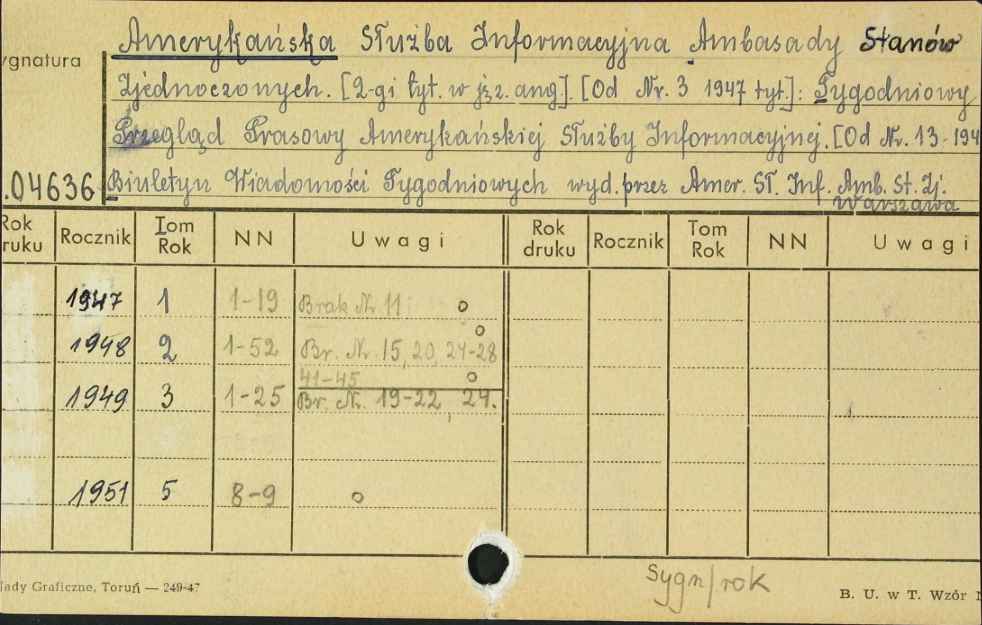 Amerykańska Służba Informacyjna Ambasady Stanów
ygnatura
Zjednoczonych. [2-gi tyt. w jęz. ang]. [Od Nr. 3 1947 tyt.]: Tygodniowy
Przegląd Prasowy Amerykańskiej Służby Informacyjnej. [Od Nr. 13-194
.04636 Biuletyn Wiadomości Tygodniowych wyd. przez Amer. Sł. Inf. Amb. St. Zj.
Warszawa
Rok ruku Rocznik Tom Rok NN Uwagi Rok druku Rocznik Tom Rok NN Uwagi
1947 1 1-19 Brak Nr 11 o
1948 2 1-52 Br. Nr. 15, 20, 24-28 o
41-45 o
1949 3 1-25 Br. Nr. 19-22, 24.
1951 5 8-9 o
Sygn/rok
łady Graficzne, Toruń — 249-47 B. U. w T. Wzór